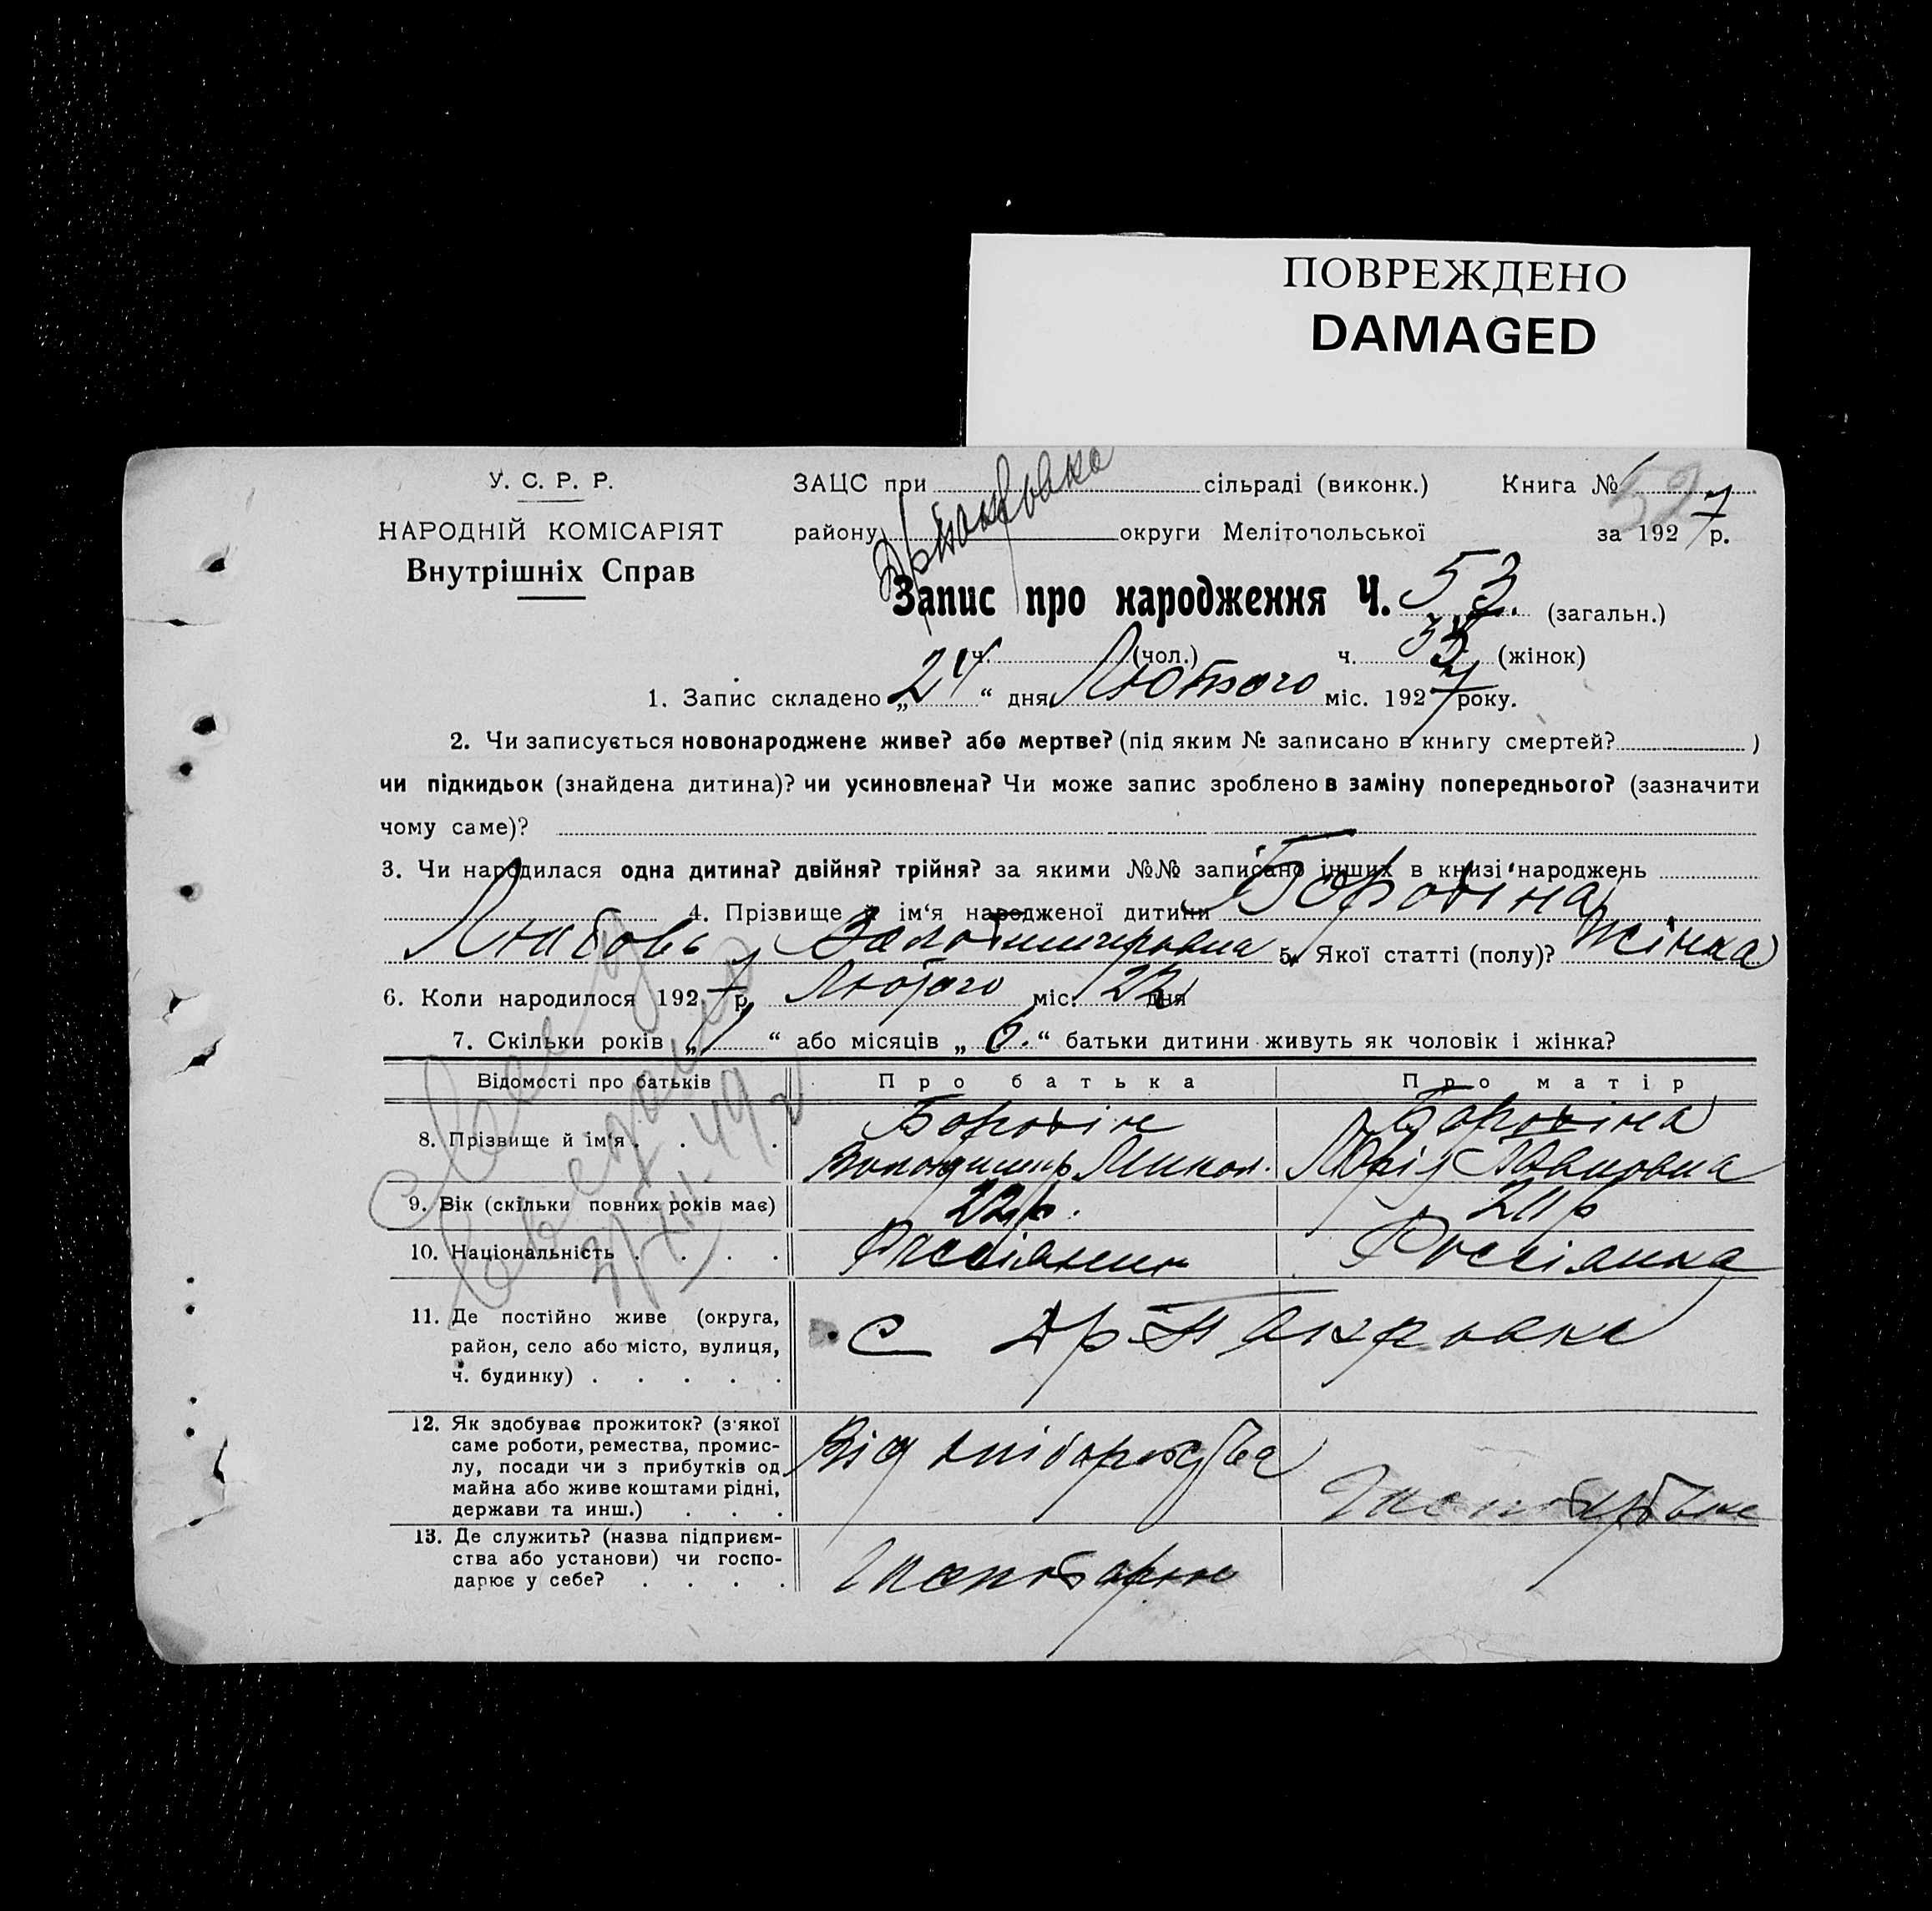 ПОВРЕЖДЕНО
DAMAGED
У. С. Р. Р.
НАРОДНІЙ КОМІСАРІЯТ
Внутрішніх Справ
ЗАЦС при сільраді (виконк.) Книга №
району округи Мелітопольської за 1927 р.
Запис про народження Ч. 53. (загальн.)
ч. (чол.) ч. (жінок)
1. Запис складено „24“ дня Лютого міс. 1927 року.
2. Чи записується новонароджене живе? або мертве? (під яким № записано в книгу смертей? )
чи підкидьок (знайдена дитина)? чи усиновлена? Чи може запис зроблено в заміну попереднього? (зазначити
чому саме)?
3. Чи народилася одна дитина? двійня? трійня? за якими №№ записано інших в книзі народжень
4. Прізвище й ім‘я народженої дитини Бородіна
Любовь 5. Якої статті (полу)? Жінка
6. Коли народилося 1927 р. Лютого міс. 22 дня
7. Скільки років „1“ або місяців „6.“ батьки дитини живуть як чоловік і жінка?
Відомості про батьків Про батька Про матір
8. Прізвище й ім‘я . . . Бородін Бородіна
Володимир Микол. Юлія Павловна
9. Вік (скільки повних років має) 22 р. 20 р
10. Національність . . . . Россіянин Россіянка
11. Де постійно живе (округа,
район, село або місто, вулиця,
ч. будинку) . . . . .
с
12. Як здобуває прожиток? (з якої
саме роботи, ремества, промис-
лу, посади чи з прибутків од
майна або живе коштами рідні,
держави та инш.) . . .
Від хліборобства
13. Де служить? (назва підприєм-
ства або установи) чи госпо-
дарює у себе? . . . .